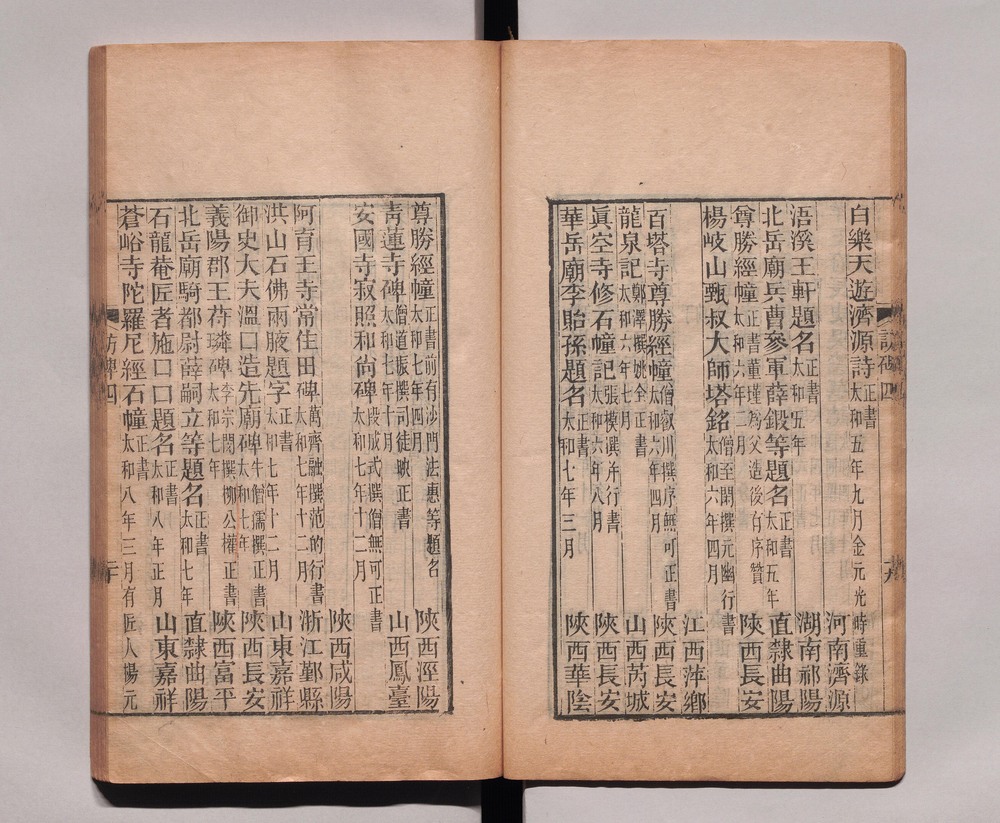 白樂天遊濟源詩 正書 太和五年九月金元光時重錄
河南濟源
浯溪王軒題名 正書 太和五年 湖南祁陽
北岳廟兵曹參軍薛鍛等題名 正書 太和五年 直隸曲陽
尊勝經幢 正書董瑾為父造後有序贊 太和六年二月 陝西長安
楊岐山甄叔大師塔銘 僧至閑撰元幽行書 太和六年四月
江西萍鄉
百塔寺尊勝經幢 僧叡川撰序無可正書 太和六年四月 陝西長安
龍泉記 鄭澤撰姚全正書 太和六年七月 山西芮城
眞空寺修石幢記 張模撰并行書 太和六年八月 陝西長安
華岳廟李貽孫題名 正書 太和七年三月 陝西華陰
尊勝經幢 正書前有沙門法惠等題名 太和七年四月 陝西涇陽
靑蓮寺碑 僧道振撰司徒映正書 太和七年十月 山西鳳臺
安國寺寂照和尚碑 段成式撰僧無可正書 太和七年十二月
陝西咸陽
阿育王寺常住田碑 萬齊融撰范的行書 太和七年十二月 浙江鄞縣
洪山石佛兩腋題字 正書 太和七年十二月 山東嘉祥
御史大夫溫口造先廟碑 牛僧孺撰正書 太和七年 陝西長安
義陽郡王苻璘碑 李宗閔撰柳公權正書 太和七年 陝西富平
北岳廟騎都尉薛嗣立等題名 正書 太和七年 直隸曲陽
石龍菴匠者施口口題名 正書 太和八年正月 山東嘉祥
蒼峪寺陀羅尼經石幢 正書 太和八年三月有匠人楊元
訪碑四